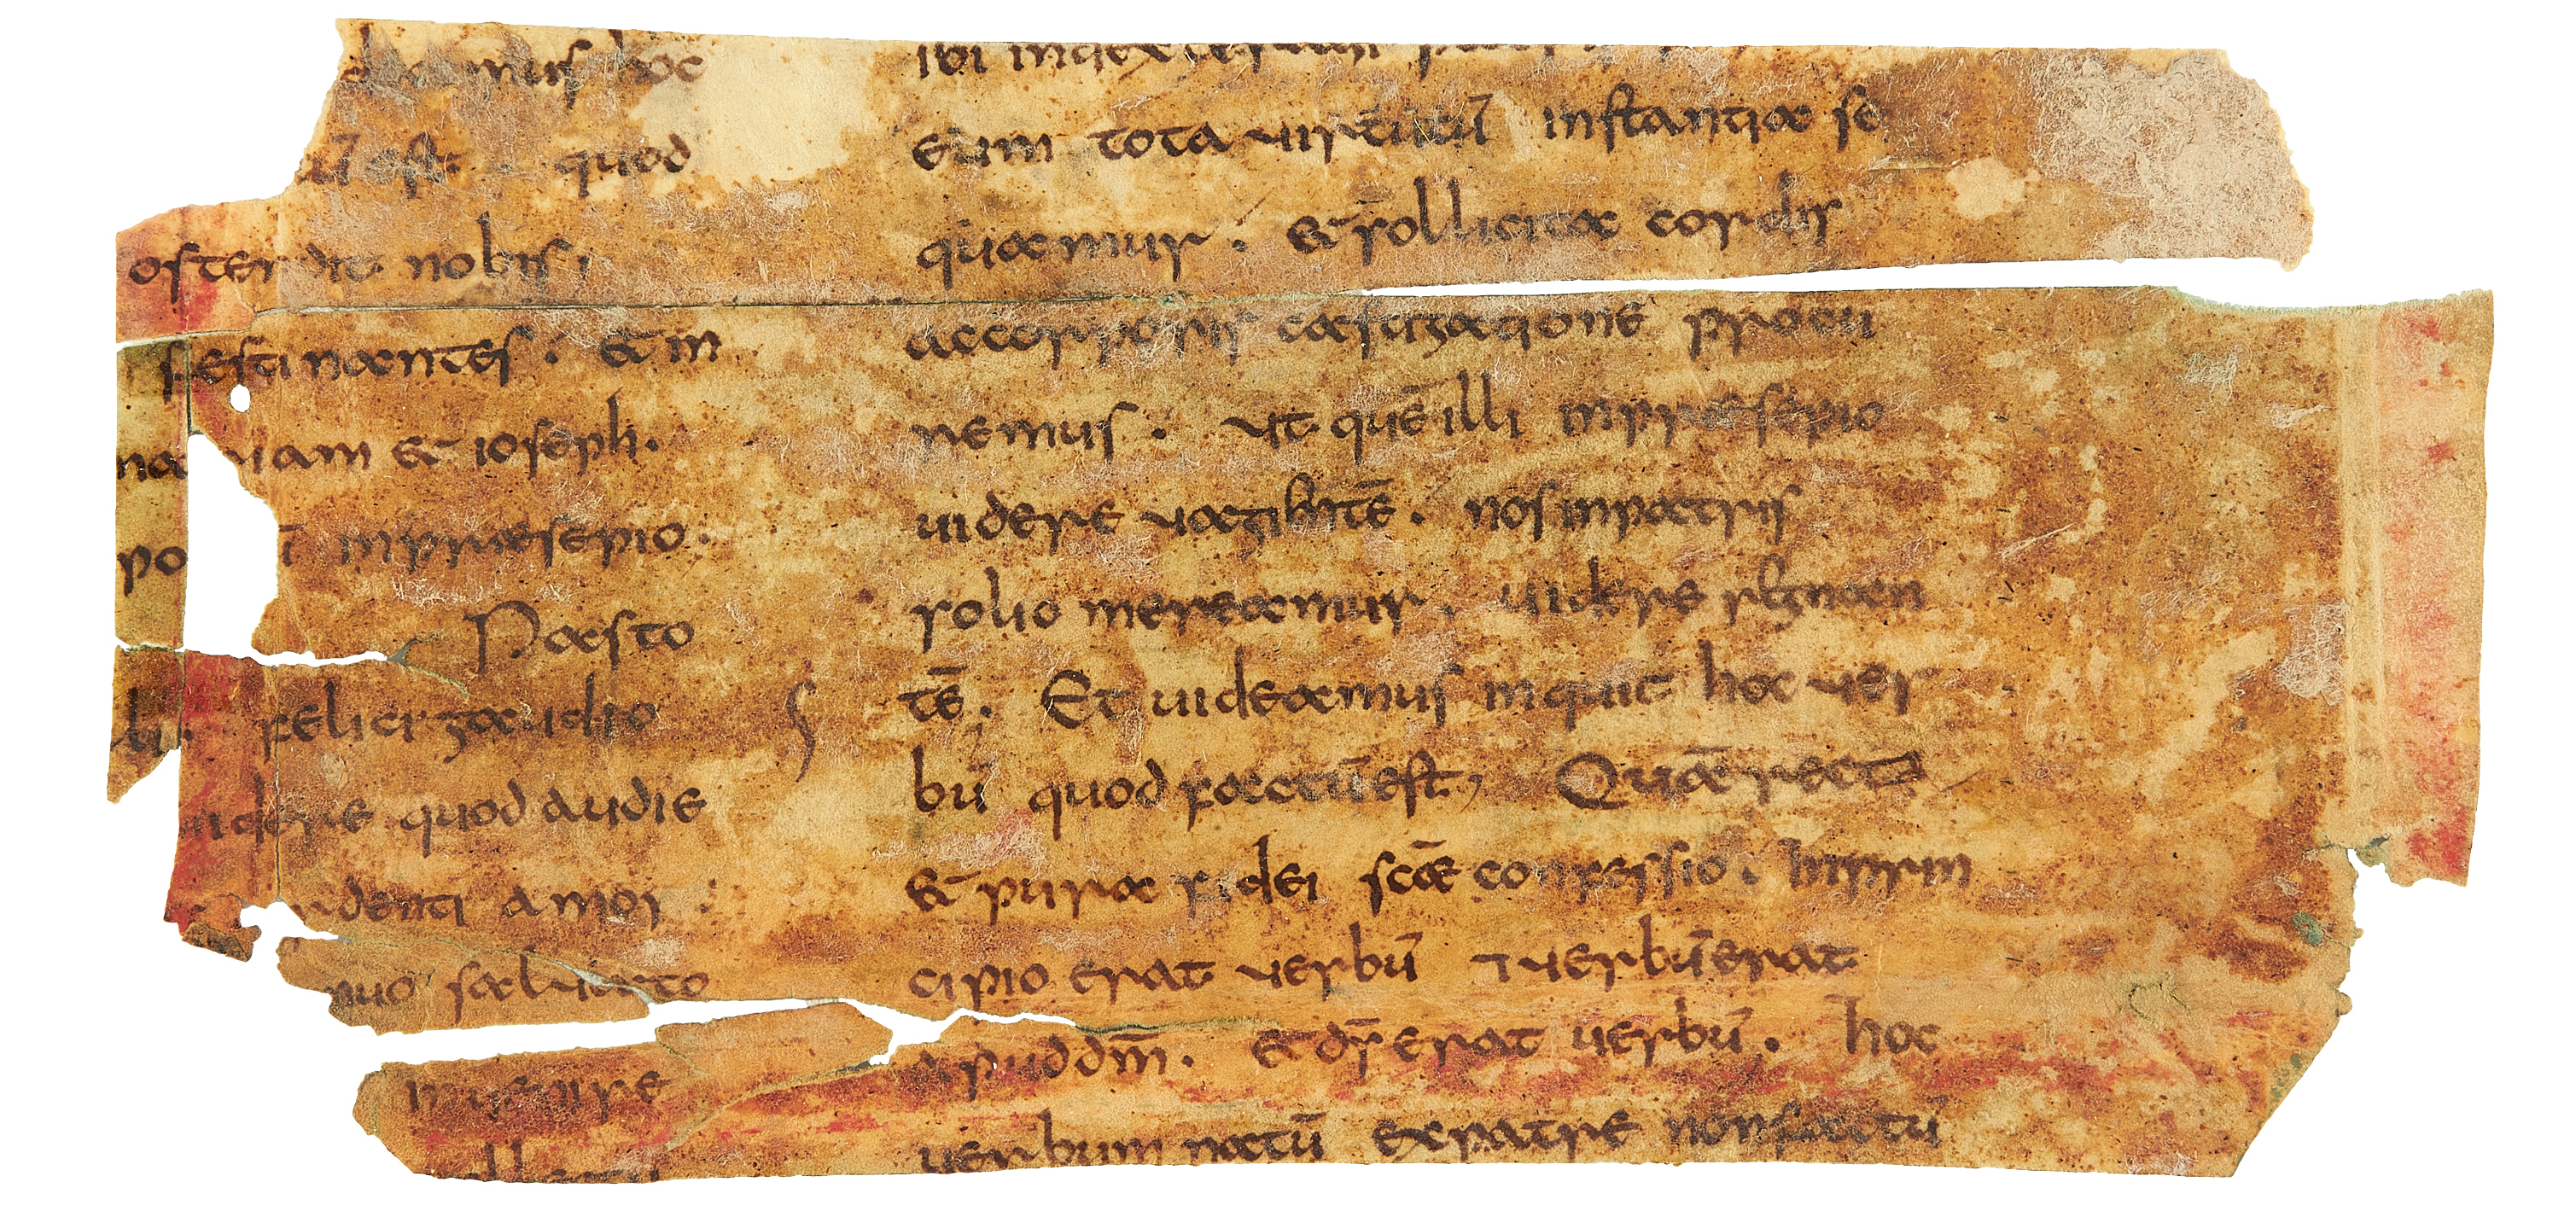 mus hoc
ē est · quod
ostendit nobis,
festinantes · & in
uam & ioseph ·
po in præsepio ·
Pasto
felici gaudio
uidere quod audie
denti amor
saluato
inuenire
ibi
eum tota uirtutū instantia se
quamur · & sollicita cordis
ac corporis castigatione procu
remus · ut quē illi in præsepio
uidere uagientē · nos in patris
solio mereamur · uidere regnan
tē · Et uideamus inquit hoc uer
bū quod factū est, Quā recta
& pura fidei scæ confessio · In prin
cipio erat uerbū ⁊ uerbū erat
apud dm̄ · & ds̄ erat uerbū · hoc
uerbum natū ex patre non factū